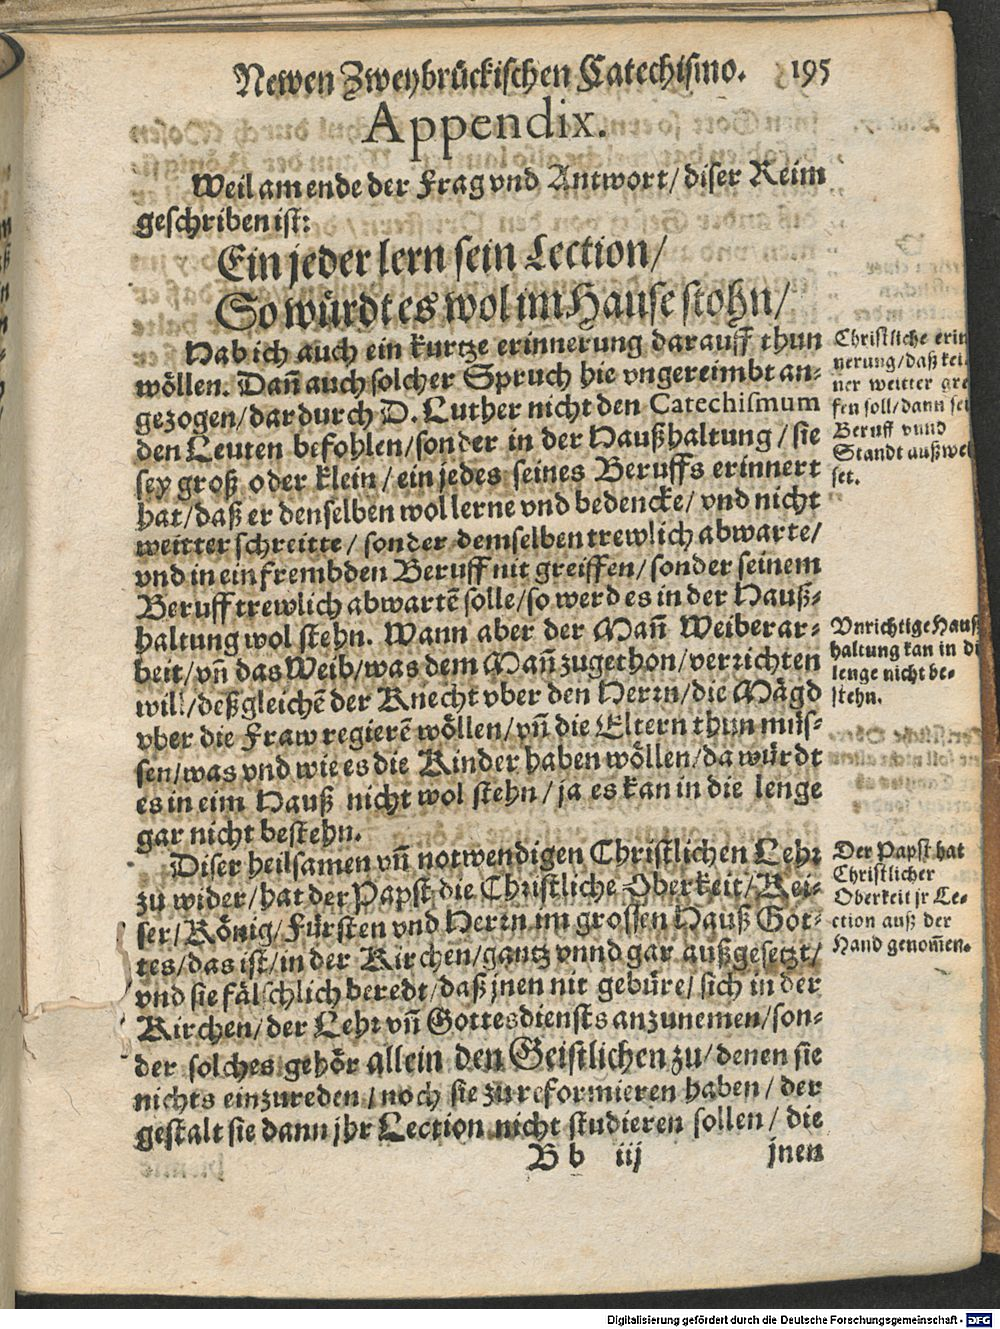 Newen Zweybrückischen Catechismo. 195
Appendix.
Weil am ende der Frag vnd Antwort/ diser Reim
geschriben ist:
Ein jeder lern sein Lection/
So würdt es wol im Hause stohn/
Hab ich auch ein kurtze erinnerung darauff thun
wöllen. Dañ auch solcher Spruch hie vngereimbt an-
gezogen/ dardurch D. Luther nicht den Catechismum
den Leuten befohlen/ sonder in der Haußhaltung/ sie
sey groß oder klein/ ein jedes seines Beruffs erinnert
hat/ daß er denselben wol lerne vnd bedencke/ vnd nicht
weitter schreitte/ sonder demselben trewlich abwarte/
vnd in ein frembden Beruff nit greiffen/ sonder seinem
Beruff trewlich abwartē solle/ so werd es in der Hauß-
haltung wol stehn. Wann aber der Mañ Weiberar-
beit/ vñ das Weib/ was dem Mañ zugethon/ verrichten
will/ deßgleichē der Knecht vber den Herrn/ die Mägd
vber die Fraw regierē wöllen/ vñ die Eltern thun müs-
sen/ was vnd wie es die Kinder haben wöllen/ da würdt
es in eim Hauß nicht wol stehn/ ja es kan in die lenge
gar nicht bestehn.
Diser heilsamen vñ notwendigen Christlichen Lehr
zu wider/ hat der Papst die Christliche Oberkeit/ Kei-
ser/ König/ Fürsten vnd Herrn im grossen Hauß Got-
tes/ das ist/ in der Kirchen/ gantz vnnd gar außgesetzt/
vnd sie fälschlich beredt/ daß jnen nit gebüre/ sich in der
Kirchen/ der Lehr vñ Gottesdiensts anzunemen/ son-
der solches gehör allein den Geistlichen zu/ denen sie
nichts einzureden/ noch sie zu reformieren haben/ der
gestalt sie dann jhr Lection nicht studieren sollen/ die
B b iij jnen
Christliche erin
nerung/ daß kei
ner weitter gre
fen soll/ dann sei
Beruff vnnd
Standt außwei
set.
Vnrichtige Hauß
haltung kan in di
lenge nicht be-
stehn.
Der Papst hat
Christlicher
Oberkeit jr Le-
ction auß der
Hand genom̃en.
Digitalisierung gefördert durch die Deutsche Forschungsgemeinschaft - DFG